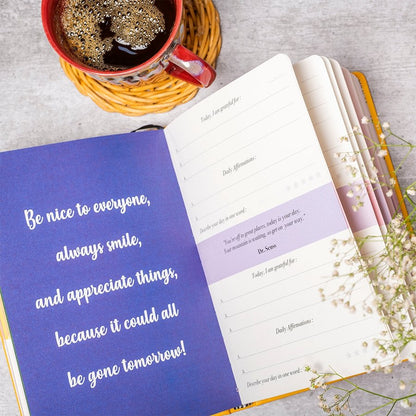 Be nice to everyone,
always smile,
and appreciate things,
because it could all
be gone tomorrow!
Today, I am grateful for :
1.
2.
3.
Daily Affirmations :
1.
2.
Describe your day in one word :
"You're off to great places, today is your day.
Your mountain is waiting, so get on your way."
Dr. Seuss
Today, I am grateful for :
1.
2.
3.
Daily Affirmations :
1.
2.
Describe your day in one word :